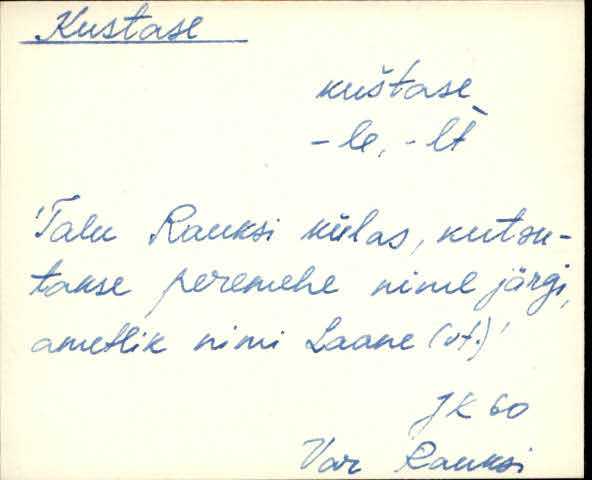 Kustase
kuštase
-le, -lt̄
'Talu Rauksi külas, kutsu-
takse peremehe nime järgi,
ametlik nimi Laane (vt.)'
JK 60
Var Rauksi